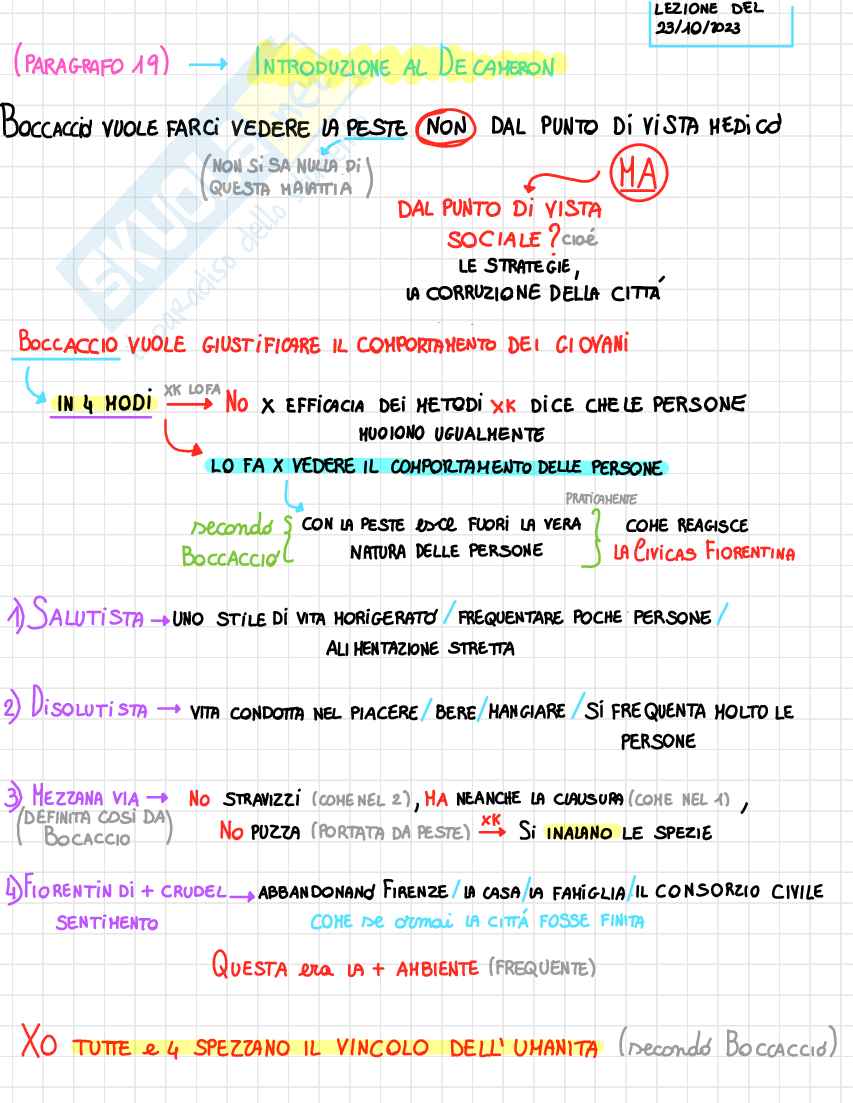 LEZIONE DEL
23/10/2023
(PARAGRAFO 19) → INTRODUZIONE AL DECAMERON
BOCCACCIO VUOLE FARCI VEDERE LA PESTE NON DAL PUNTO DI VISTA MEDICO
(NON SI SA NULLA DI
QUESTA MALATTIA)
MA
DAL PUNTO DI VISTA
SOCIALE? cioé
LE STRATEGIE,
LA CORRUZIONE DELLA CITTÁ
BOCCACCIO VUOLE GIUSTIFICARE IL COMPORTAMENTO DEI GIOVANI
IN 4 MODI XK LO FA → NO X EFFICACIA DEI METODI XK DICE CHE LE PERSONE
MUOIONO UGUALMENTE
LO FA X VEDERE IL COMPORTAMENTO DELLE PERSONE
secondo BOCCACCIO { CON LA PESTE esce FUORI LA VERA
NATURA DELLE PERSONE } PRATICAMENTE
COME REAGISCE
LA CIVICAS FIORENTINA
1) SALUTISTA → UNO STILE DI VITA MORIGERATO / FREQUENTARE POCHE PERSONE /
ALIMENTAZIONE STRETTA
2) DISOLUTISTA → VITA CONDOTTA NEL PIACERE / BERE / MANGIARE / SI FREQUENTA MOLTO LE
PERSONE
3) MEZZANA VIA → NO STRAVIZZI (COME NEL 2), MA NEANCHE LA CLAUSURA (COME NEL 1),
(DEFINITA COSÌ DA
BOCACCIO)
NO PUZZA (PORTATA DA PESTE) XK → SI INALANO LE SPEZIE
4) FIORENTIN DI + CRUDEL → ABBANDONANO FIRENZE / LA CASA / LA FAMIGLIA / IL CONSORZIO CIVILE
SENTIMENTO
COME se ormai LA CITTÁ FOSSE FINITA
QUESTA era LA + AMBIENTE (FREQUENTE)
XO TUTTE e 4 SPEZZANO IL VINCOLO DELL'UMANITA (secondo BOCCACCIO)
SKUOLA.net
il paradiso dello studente